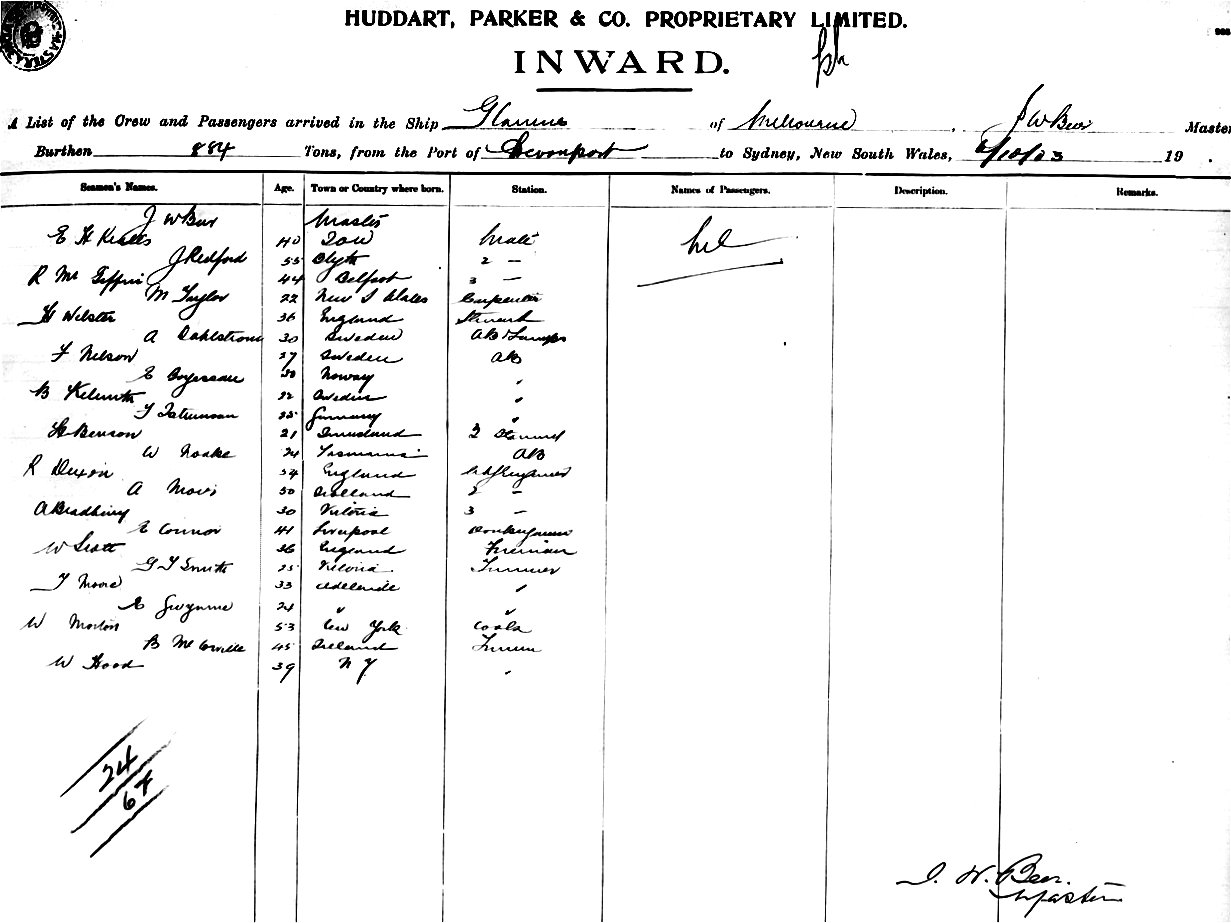 HUDDART, PARKER & CO. PROPRIETARY LIMITED.
INWARD.
A List of the Crew and Passengers arrived in the Ship of Melbourne, J W Beer Master
Burthen 884 Tons, from the Port of Devonport to Sydney, New South Wales, 6/10/03 19 .
Seamen's Names. Age. Town or Country where born. Station. Names of Passengers. Description. Remarks.
J W Beer Master
E H 40 Mate Nil
J Redford 55 Blyth 2 —
R Mc Giffin 44 Belfast 3 —
M Taylor 22 New S Wales Carpenter
H Webster 36 England Steward
A Dahlstrom 30 Sweden AB & Lamps
F Nelson 27 Sweden AB
E Norway "
B 22 Sweden "
F 25 Germany "
H Benson 21 2 Steward
W Noake 24 Tasmania AB
R Dixon 54 England
A 50 Scotland 2 —
A Bradbury 30 Victoria 3 —
E Connor 41 Liverpool Donkeyman
W Scott 36 England Fireman
G F Smith 25 Victoria Trimmer
T Moore 33 Adelaide "
E Gwynne 24 " "
W Morton 53 New York Cook
B 45 Ireland
W Hood 39 N Y "
24
64
J. W. Beer.
Master